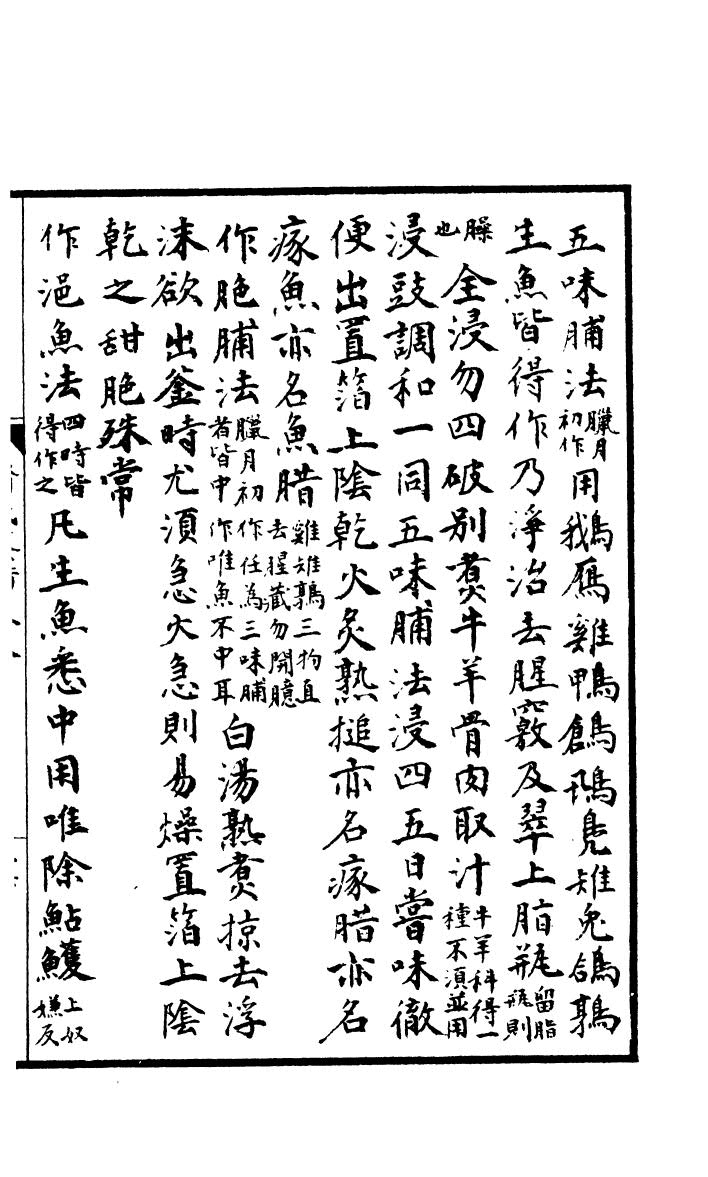 五味脯法臘月初作用鵝鴈雞鴨鶬鳵鳧雉兔鴿鶉
生魚皆得作乃淨治去腥竅及翠上脂瓶留脂則
臊也全浸勿四破別煑牛羊骨肉取汁牛羊科得一種不湏並用
浸豉調和一同五味脯法浸四五日嘗味徹
便出置箔上陰乾火炙熟搥亦名瘃腊亦名
瘃魚亦名魚腊雞雉鶉三物直去腥藏勿開臆
作脃脯法臘月初作任為三味脯者皆中作唯魚不中耳白湯熟煑掠去浮
沫欲出釜時尤湏急火急則易燥置箔上陰
乾之甜脃殊常
作浥魚法四時皆得作之凡生魚悉中用唯除鮎鱯上奴嫌反